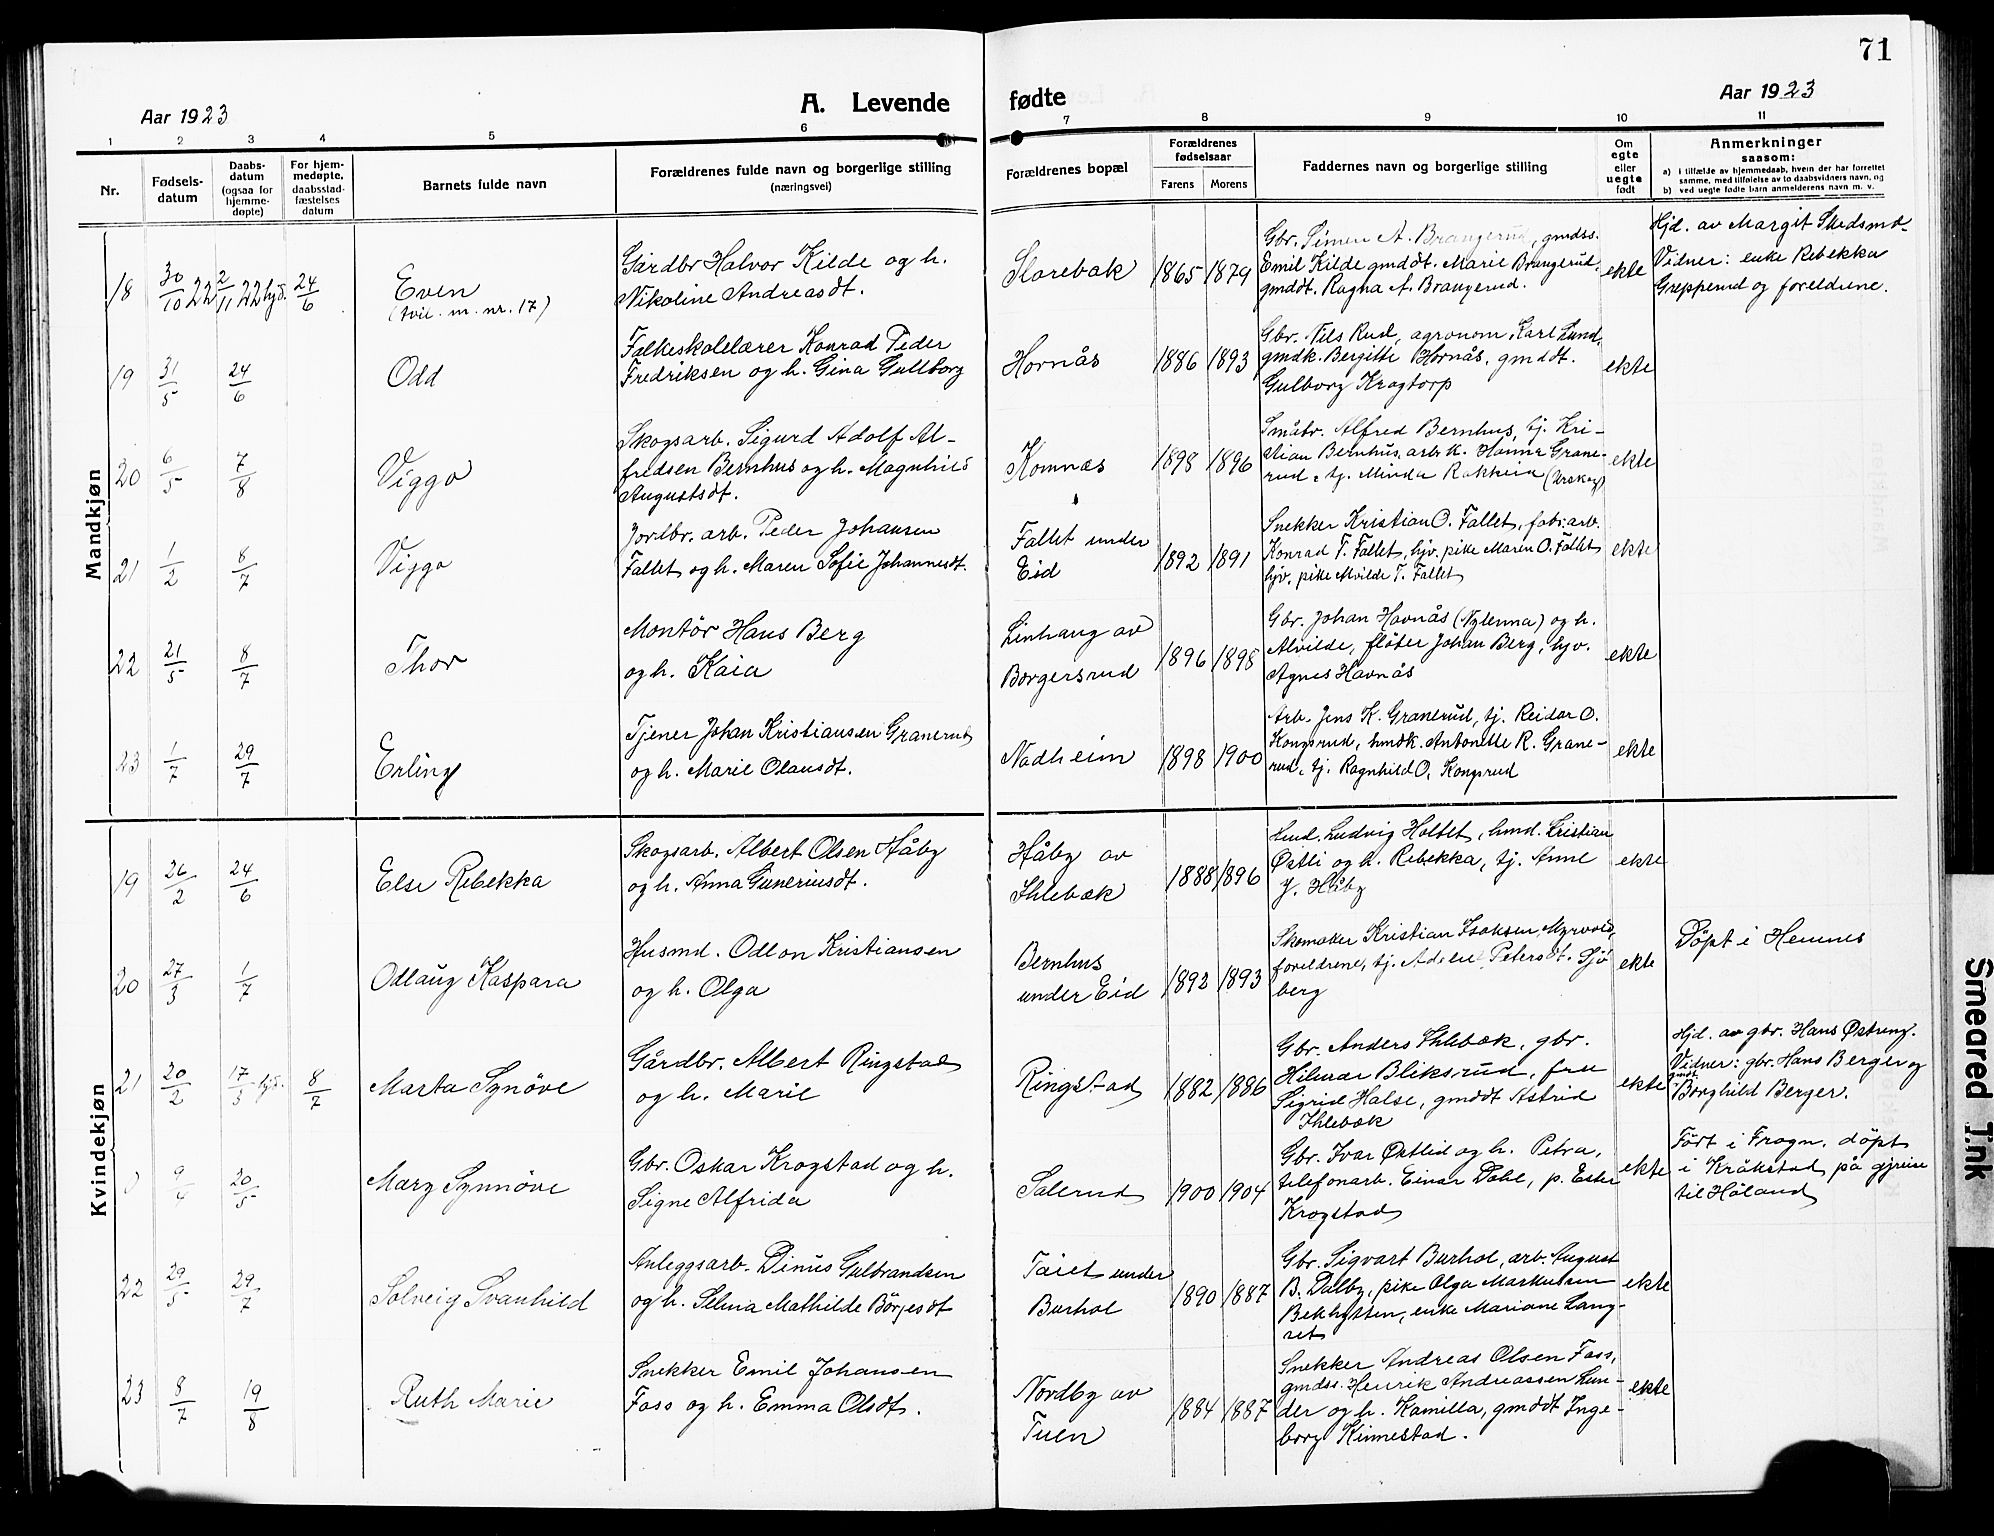 71
Aar 1923
A. Levende
fødte
Aar 1923
1 2 3 4 5 6 7 8 9 10 11
Nr.
Fødsels-
datum
Daabs-
datum
(ogsaa for
hjemme-
døpte)
For hjem-
medøpte,
daabsstad-
fæstelses
datum
Barnets fulde navn
Forældrenes fulde navn og borgerlige stilling
(næringsvei)
Forældrenes bopæl
Forældrenes
fødselsaar
Farens Morens
Faddernes navn og borgerlige stilling
Om
egte
eller
uegte
født
Anmerkninger
saasom:
a) i tilfælde av hjemmedaab, hvem der har forrettet
samme, med tilføielse av to daabsvidners navn, og
b) ved uegte fødte barn anmelderens navn m. v.
Mandkjøn
18
30/10 22
2/11 22 hjd.
24/6
Even
(tvil. m. nr. 17)
Gårdbr Halvor Kilde og h.
Nikoline Andreasdt.
Slorebak
1865 1879
Gbr. Simen A. Brangerud, gmdss.
Emil Kilde gmddt. Marie Brangerud,
gmddt. Ragna A. Brangerud.
ekte
Hjd. av Margit Skedsmo
Vidner: enke Rebekka
Grepperud og foreldrene.
19
31/5
24/6
Odd
Folkeskolelærer Konrad Peder
Fredriksen og h. Gina Gullborg
Hornås
1886 1893
Gbr. Nils Rud, agronom Karl Lund,
gmdk. Bergitte Hornås, gmddt.
Gulborg Krogtorp
ekte
20
6/5
7/8
Viggo
Skogsarb. Sigurd Adolf Al-
fredsen Bernhus og h. Magnhild
Augustsdt.
Komnæs
1898 1896
Småbr. Alfred Bernhus, tj. Kri-
stian Bernhus, arb.k. Hanna Grane-
rud, tj. Minda Rakkeia (Urskog)
ekte
21
1/2
8/7
Viggo
Jordbr. arb. Peder Johansen
Fallet og h. Maren Sofie Johannesdt.
Fallet under
Eid
1892 1891
Snekker Kristian O. Fallet, fabr.arb.
Konrad T. Fallet, hjv. pike Maren O. Fallet
hjv. pike Mvilde T. Fallet
ekte
22
21/5
8/7
Thor
Montör Hans Berg
og h. Kaia
Linhaug av
Borgersrud
1896 1898
Gbr. Johan Havnås (Nylenna) og h.
Alvilde, flöter Johan Berg, hjv.
Agnes Havnås
ekte
23
1/7
29/7
Erling
Tjener Johan Kristiansen Granerud
og h. Marie Olausdt.
Nadheim
1898 1900
Arb. Jens K. Granerud, tj. Reidar O.
Kongsrud, hmdk. Antonette R. Grane-
rud, tj. Ragnhild O. Kongsrud
ekte
Kvindekjøn
19
26/2
24/6
Else Rebekka
Skogsarb. Albert Olsen Håby
og h. Anna Guneriusdt.
Håby av
Ihlebæk
1888 1896
Hmd. Ludvig Holtet, hmd. Kristian
Østli og h. Rebekka, tj. Anne
J. Håby
ekte
20
27/3
1/7
Odlaug Kaspara
Husmd. Odlon Kristiansen
og h. Olga
Bernhus
under Eid
1892 1893
Skomaker Kristian Isaksen Myrvold,
foreldrene, tj. Adele Petersdt. Sjö
berg
ekte
Döpt i Hemnes
21
20/2
17/3 hjd.
8/7
Marta Synöve
Gårdbr. Albert Ringstad
og h. Marie
Ringstad
1882 1886
Gbr. Anders Ihlebæk, gbr.
Hilmar Bliksrud, fru
Sigrid Halse, gmddt Astrid
Ihlebæk
ekte
Hjd. av gbr. Hans Østreng.
Vidner: gbr. Hans Berger og
gmdt.
Borghild Berger.
0
9/4
20/5
Mary Synnöve
Gbr. Oskar Krogstad og h.
Signe Alfrida
Salerud
1900 1904
Gbr. Ivar Østlid og h. Petra,
telefonarb. Einar Dahl, p. Ester
Krogstad
ekte
Fört i Frogn, döpt
i Kråkstad på gjreise
til Höland
22
29/5
29/7
Solveig Svanhild
Anleggsarb. Dinus Gulbrandsen
og h. Selma Mathilde Börjesdt
Taiet under
Burhol
1890 1887
Gbr. Sigvart Burhol, arb. August
B. Dalby, pike Olga Markussen
Bekhytten, enke Mariane Lang-
ret
ekte
23
8/7
19/8
Ruth Marie
Snekker Emil Johansen
Foss og h. Emma Olsdt.
Nordby av
Tuen
1884 1887
Snekker Andreas Olsen Foss,
gmdss. Henrik Andreassen Lun-
der og h. Kamilla, gmddt Inge-
borg Kinnestad.
ekte
Smeared Ink